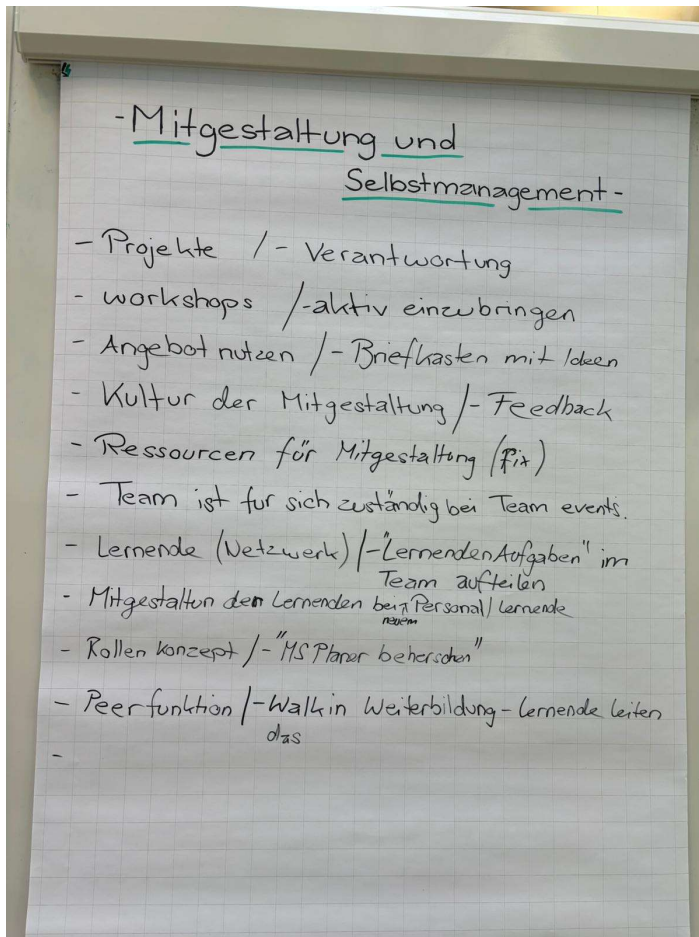 - Mitgestaltung und
Selbstmanagement -
- Projekte / - Verantwortung
- workshops / - aktiv einzubringen
- Angebot nutzen / - Briefkasten mit Ideen
- Kultur der Mitgestaltung / - Feedback
- Ressourcen für Mitgestaltung (fix)
- Team ist fur sich zuständig bei Team events.
- Lernende (Netzwerk) / - "Lernenden Aufgaben" im
Team aufteilen
- Mitgestaltun den Lernenden bei Personal / Lernende
neuem
- Rollen konzept / - "MS Planer beherschen"
- Peerfunktion / - Walk in Weiterbildung - Lernende leiten
das
-